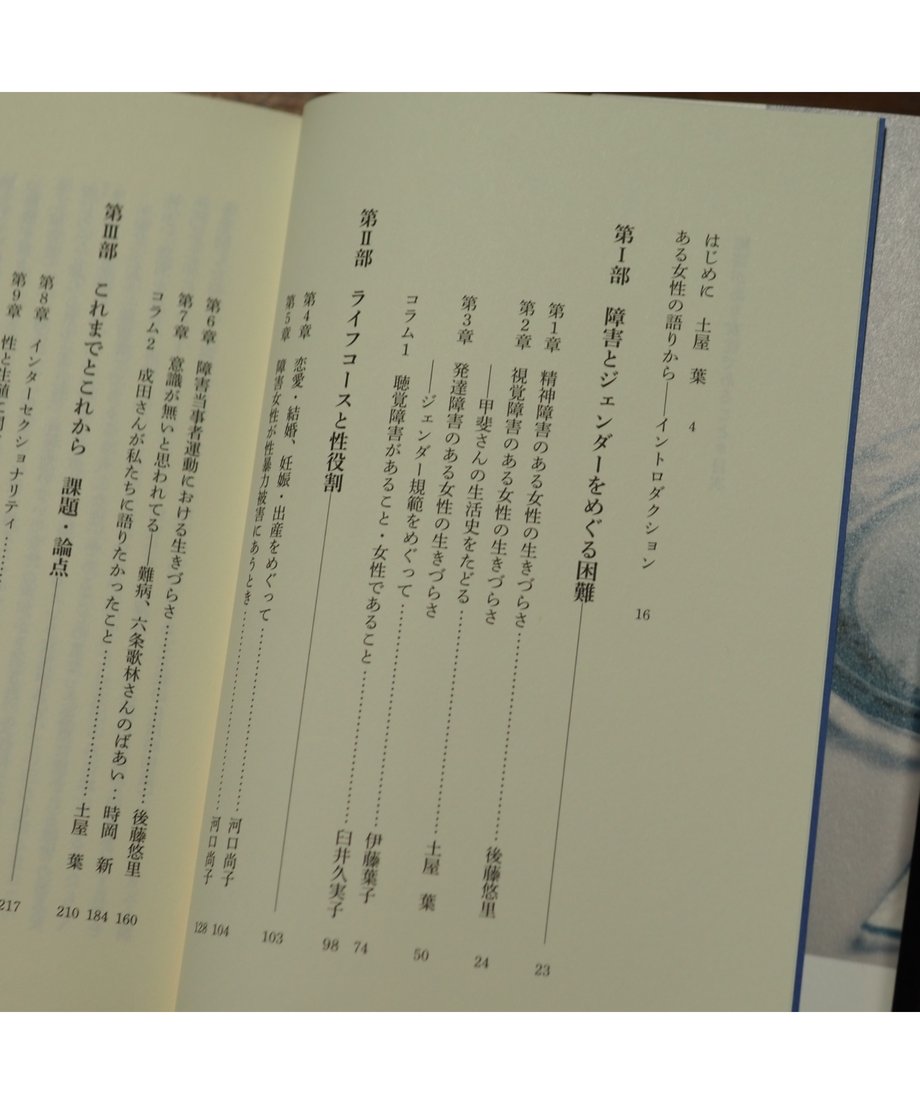 はじめに　土屋　葉　4
ある女性の語りから——イントロダクション　16
第Ⅰ部　障害とジェンダーをめぐる困難　23
第1章　精神障害のある女性の生きづらさ　後藤悠里　24
第2章　視覚障害のある女性の生きづらさ
——甲斐さんの生活史をたどる　土屋　葉　50
第3章　発達障害のある女性の生きづらさ
——ジェンダー規範をめぐって　伊藤葉子　74
コラム1　聴覚障害があること・女性であること　臼井久実子　98
第Ⅱ部　ライフコースと性役割　103
第4章　恋愛・結婚、妊娠・出産をめぐって　河口尚子　104
第5章　障害女性が性暴力被害にあうとき　河口尚子　128
第6章　障害当事者運動における生きづらさ　後藤悠里　160
第7章　意識が無いと思われてる——難病、六条歌林さんのばあい　時岡　新　184
コラム2　成田さんが私たちに語りたかったこと　土屋　葉　210
第Ⅲ部　これまでとこれから　課題・論点　217
第8章　インターセクショナリティ
第9章　性と生殖に